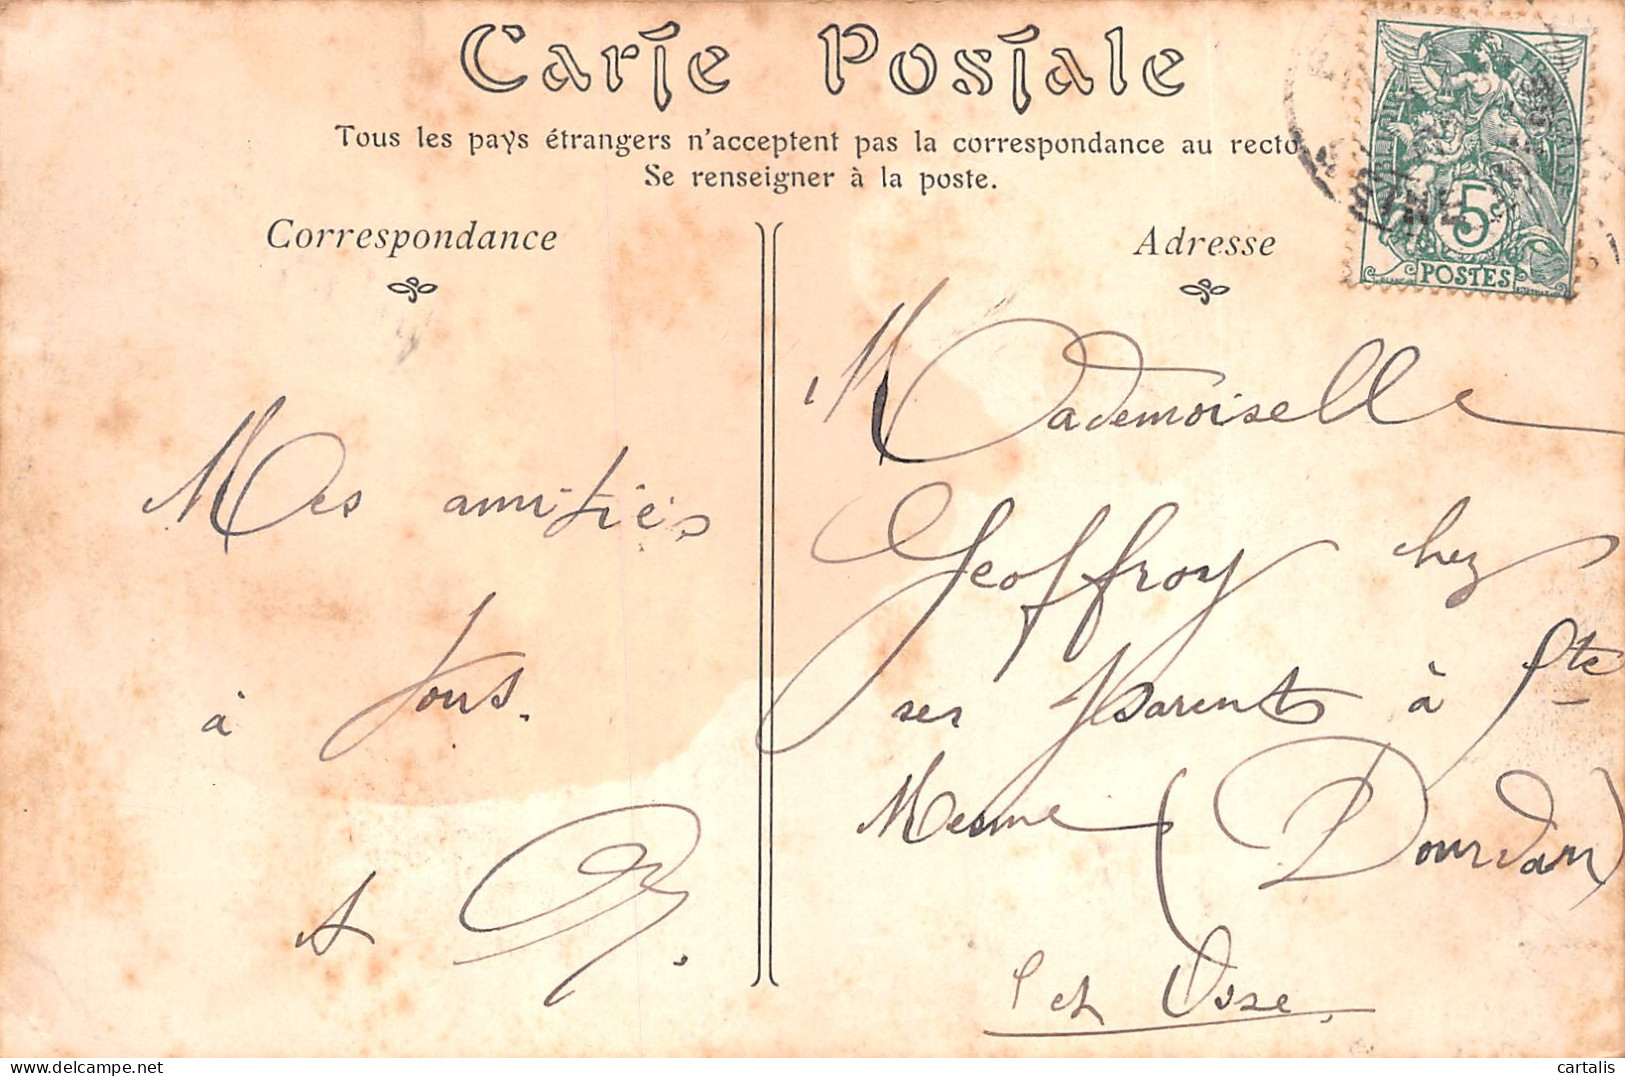 Carte Postale
Tous les pays étrangers n'acceptent pas la correspondance au recto
Se renseigner à la poste.
Correspondance
Mes amitiés
à tous.
Adresse
Mademoiselle
Geoffroy chez
ses Parents à Ste
Mesme (Dourdan)
Set Oise
RÉPUBLIQUE FRANÇAISE
5
POSTES
cartalis